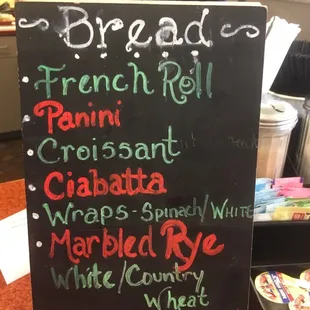 ~ Bread ~
French Roll
Panini
Croissant
Ciabatta
Wraps-Spinach/White
Marbled Rye
White/Country
Wheat